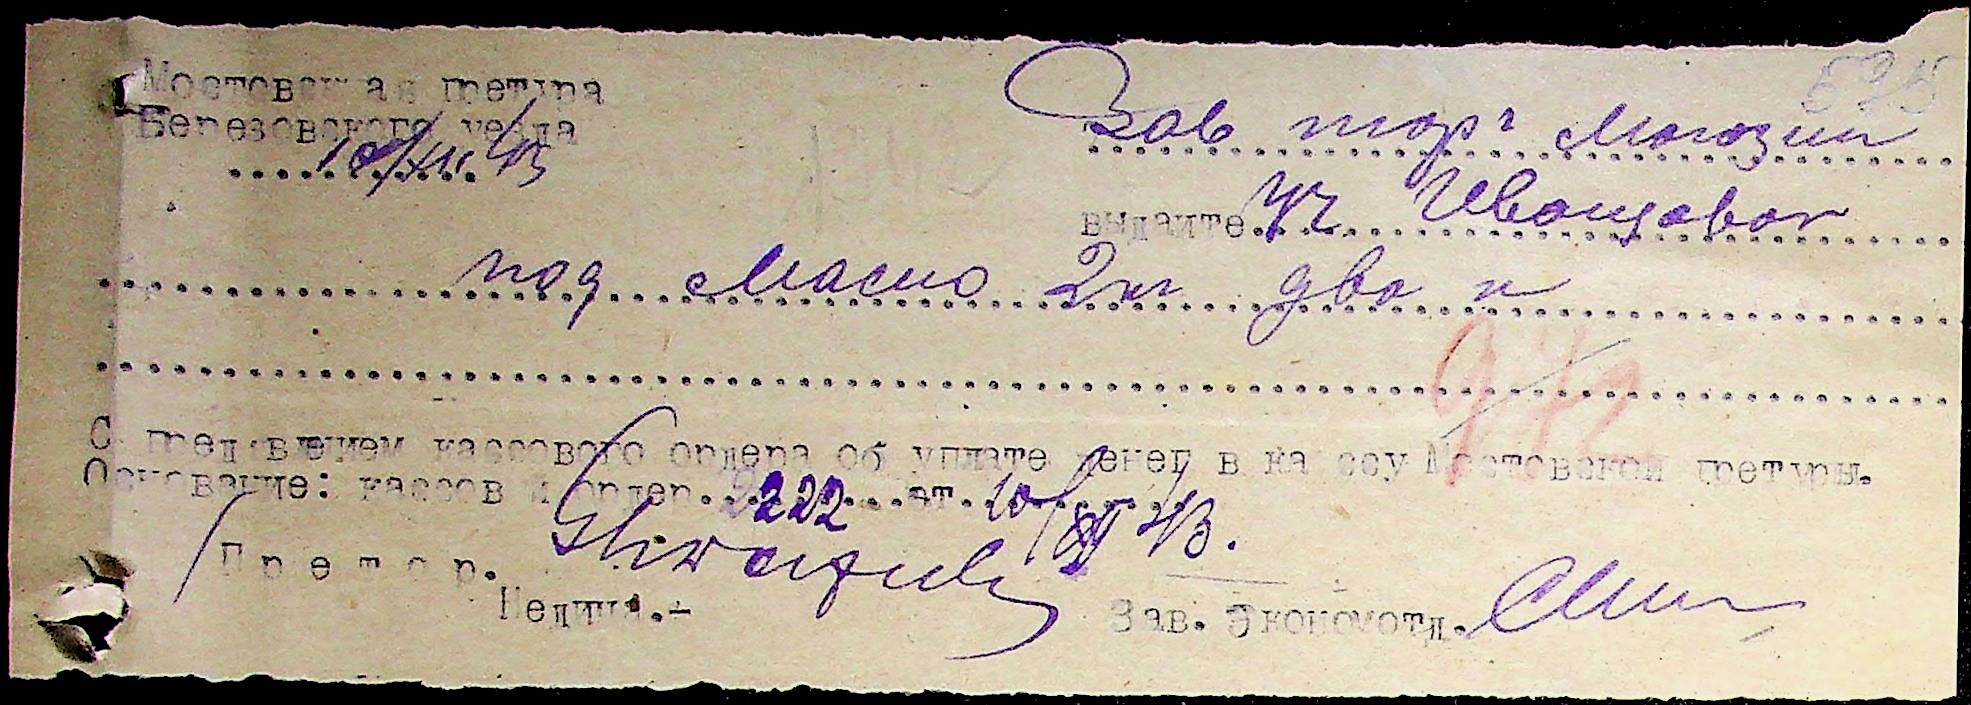 Мостовская претура
Березовского уезда
10/XII 43
575
Зав торг магазин
выдайте уч Иванцовой
под масло 2 кг два к
972
С пред'влением кассового ордера об уплате денег в кассу Мостовской претуры.
Основание: кассовый ордер. 2222 от 10/XII 43.
Претор.
Зав. Экономотд.